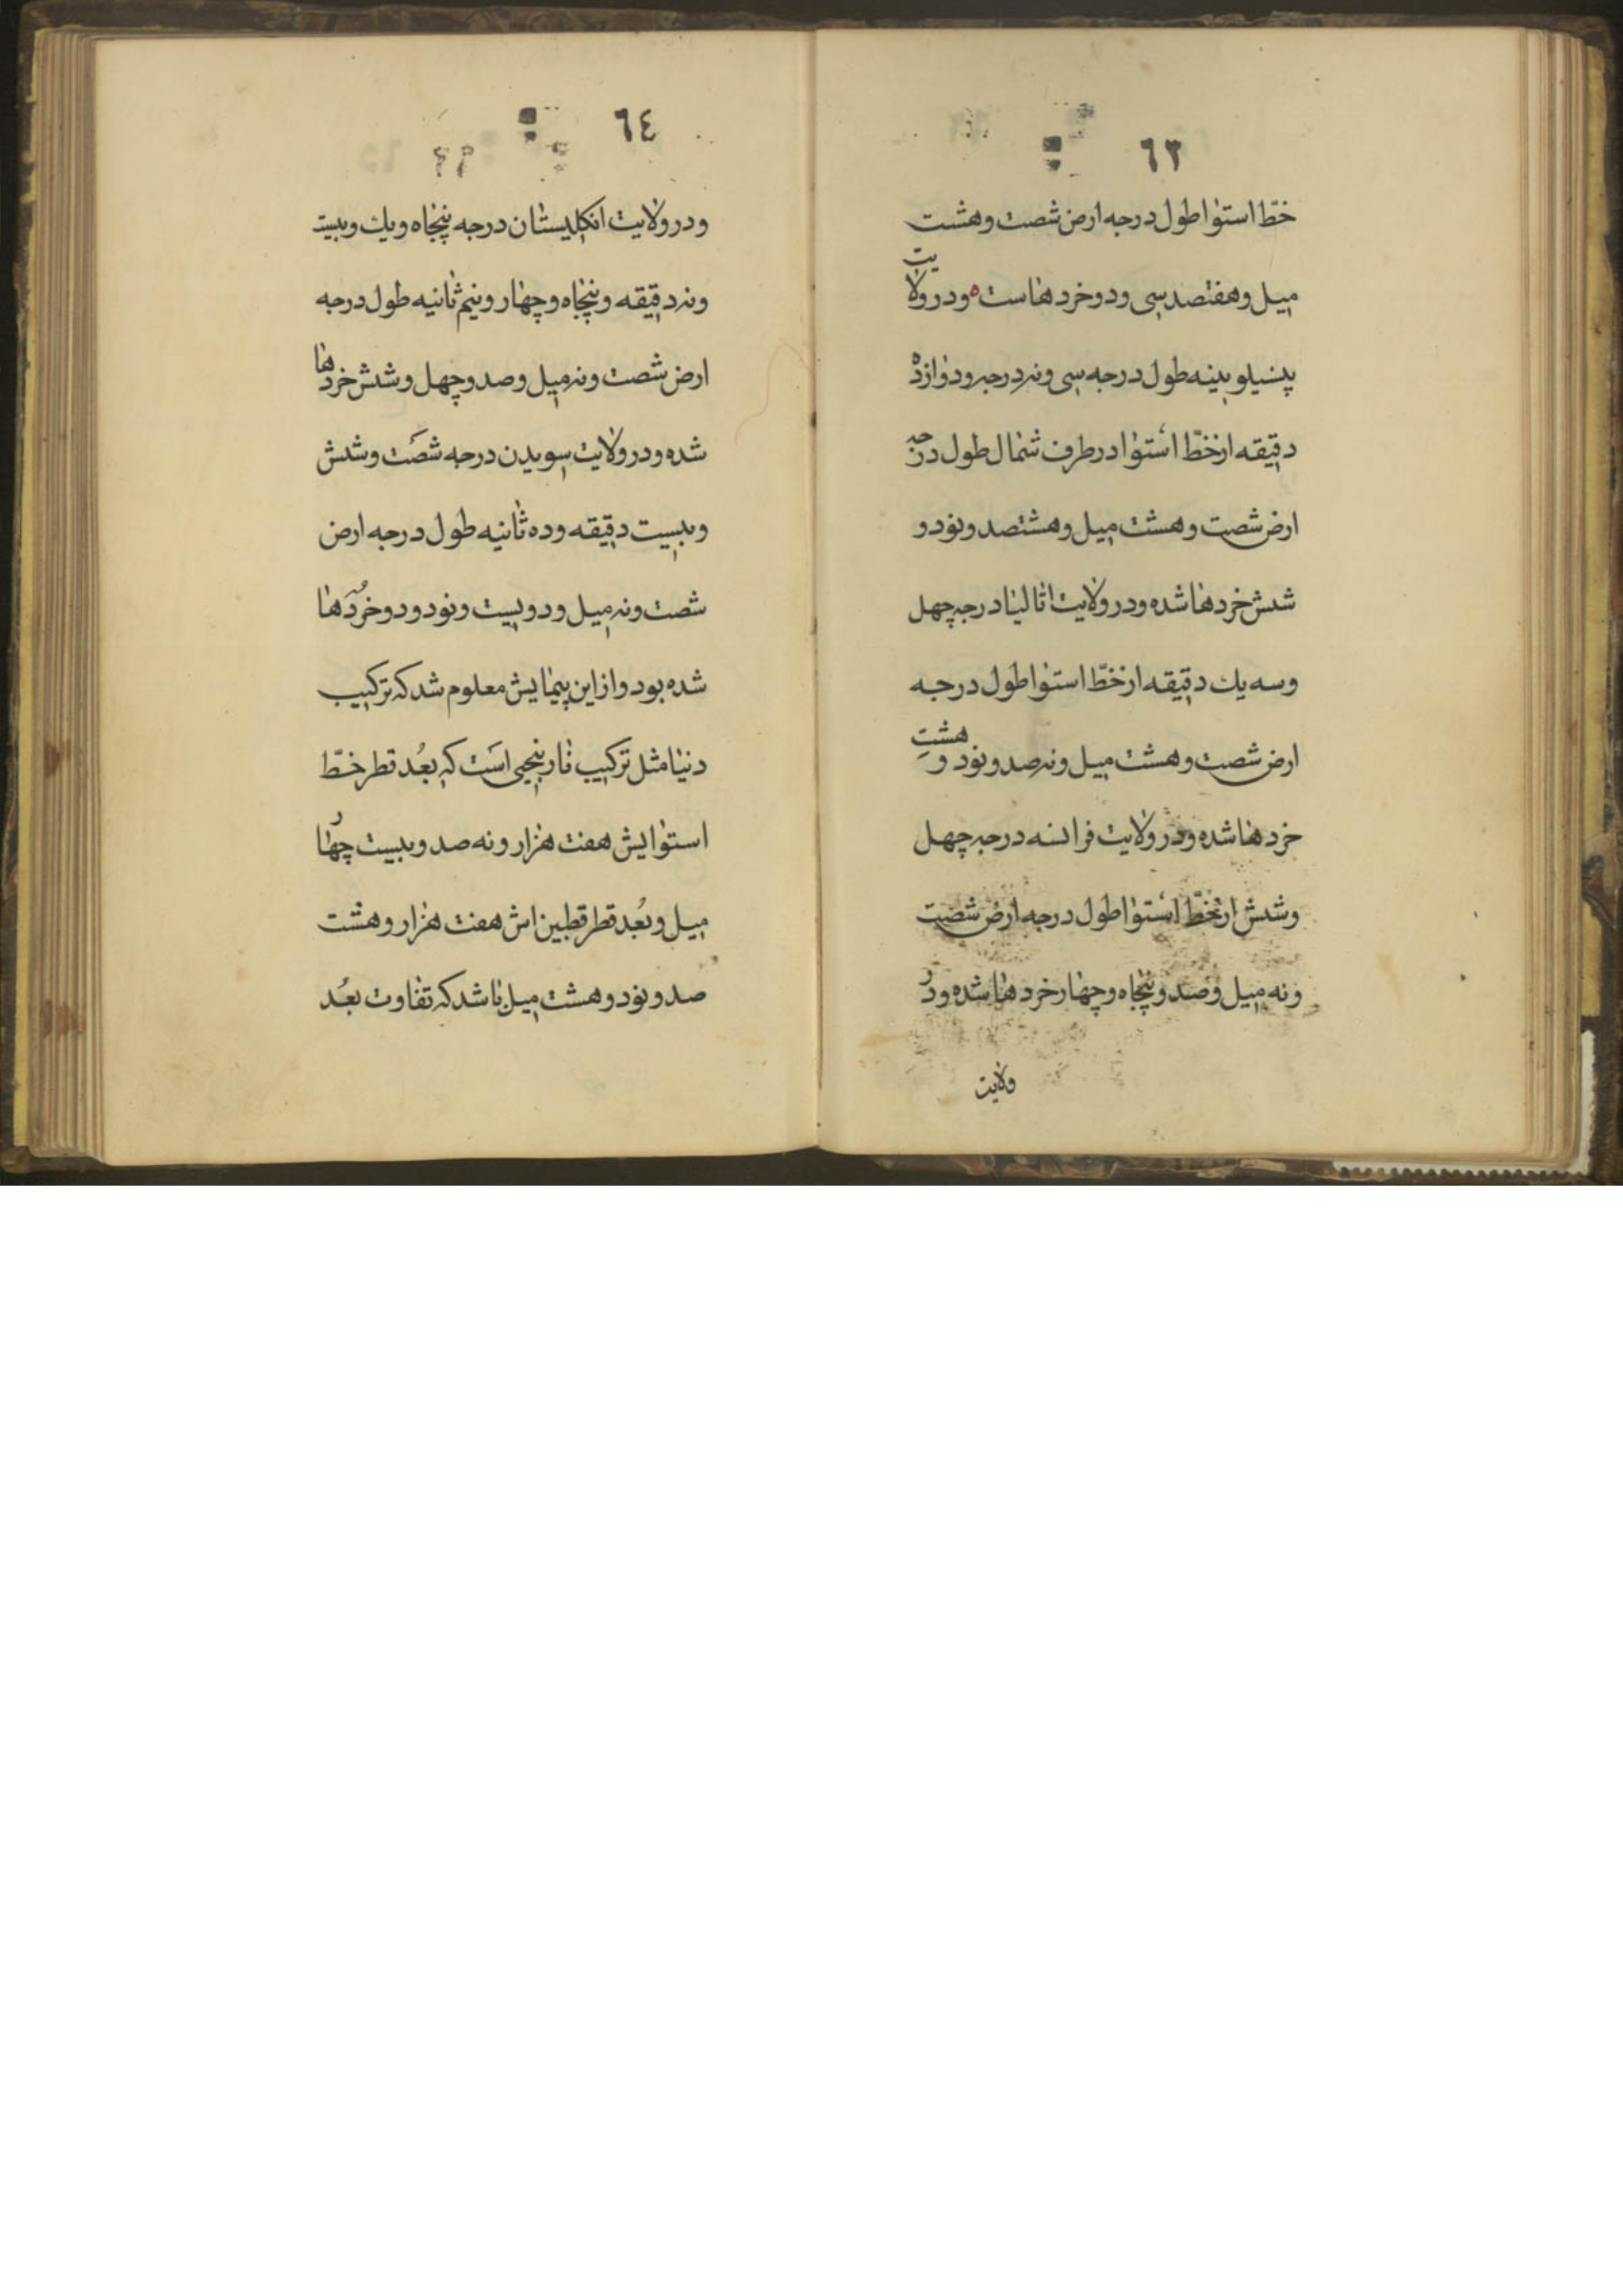 ٦٣
خطّ استوا طول درجه ارض شصت و هشت
میل و هفتصد سی و دو خردها است ه و در ولایت
پنسیلوبینه طول درجه سی و نه درجه و دوازده
دقیقه از خطّ استوا در طرف شمال طول درجه
ارض شصت و هشت میل و هشتصد و نود و
شش خردها شده و در ولایت اتالیا درجه چهل
وسه یك دقیقه از خطّ استوا طول درجه
ارض شصت و هشت میل و نه صد و نود و هشت
خردها شده و در ولایت فرانسه درجه چهل
و شش از خطّ استوا طول درجه ارض شصت
ونه میل و صد و پنجاه و چهار خردها شده و در
ولایت
٦٤
و در ولایت انکلیستان درجه پنجاه و یك و بیست
ونه دقیقه و پنجاه و چهار و نیم ثانیه طول درجه
ارض شصت ونه میل و صد و چهل و شش خردها
شده و در ولایت سویدن درجه شصت و شش
و بیست دقیقه و ده ثانیه طول درجه ارض
شصت ونه میل و دویست و نود و دو خردها
شده بود و از این پیمایش معلوم شد که ترکیب
دنیا مثل ترکیب نارنجی است که بُعد قطر خطّ
استوایش هفت هزار و نه صد و بیست چهار
میل و بُعد قطر قطبین اش هفت هزار و هشت
صد و نود و هشت میل باشد که تفاوت بُعد